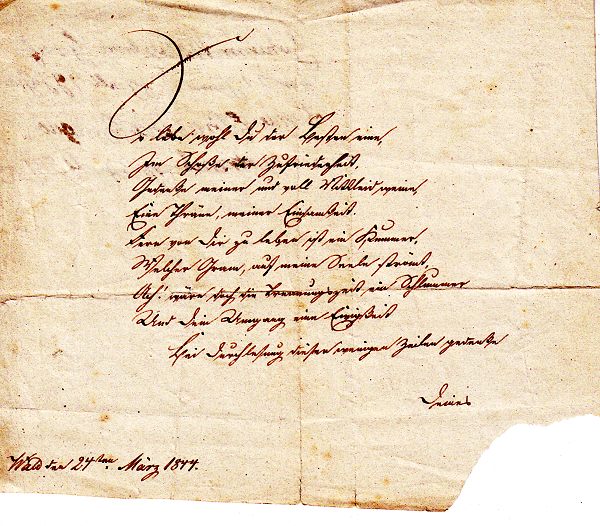 So lebe wohl Du der Besten eine,
Im Schoße, der Zufriedenheit,
Gedenke meiner und voll Mittleid weine,
Eine Thräne, meiner Einsamkeit.
Fern von Dir zu leben ist ein Kummer,
Welcher Gram, auf meine Seele strömt,
Ach! wäre doch die Trennungszeit, ein Schlummer
Und Dein Umgang eine Ewigkeit
Bei Durchlesung dieser wenigen Zeilen gedenke
Deines
Wald den 24ten März 1844.